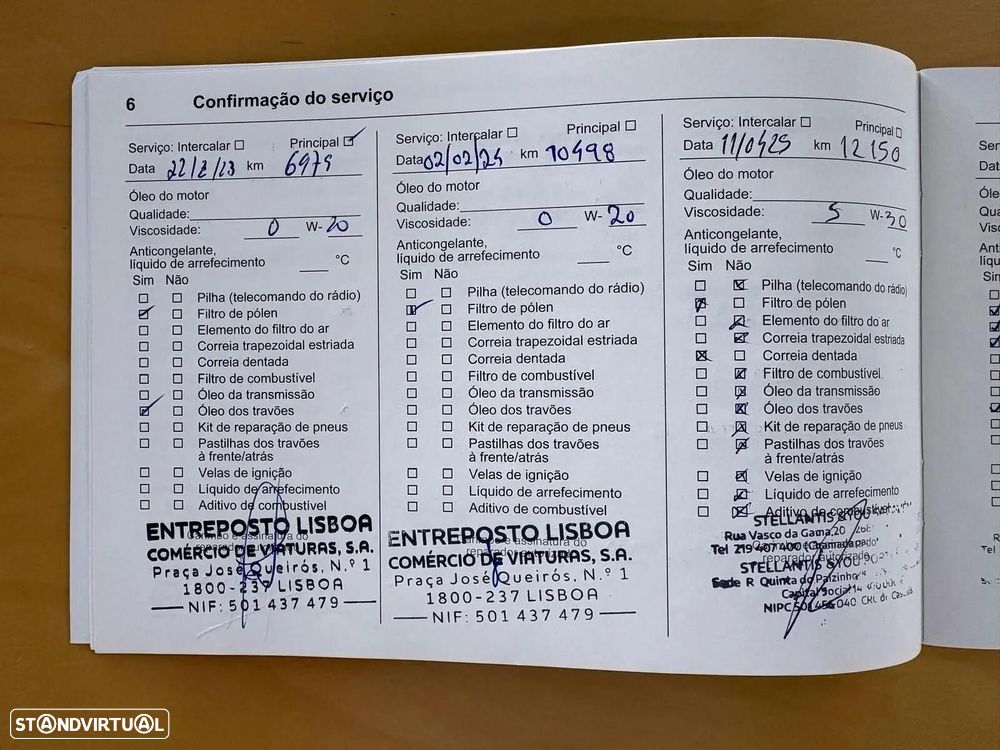 6 Confirmação do serviço
Serviço: Intercalar ☐ Principal ☑
Data 22/2/23 km 6979
Óleo do motor
Qualidade:
Viscosidade: 0 W-20
Anticongelante,
líquido de arrefecimento °C
Sim Não
☐ ☐ Pilha (telecomando do rádio)
☑ ☐ Filtro de pólen
☐ ☐ Elemento do filtro do ar
☐ ☐ Correia trapezoidal estriada
☐ ☐ Correia dentada
☐ ☐ Filtro de combustível
☐ ☐ Óleo da transmissão
☑ ☐ Óleo dos travões
☐ ☐ Kit de reparação de pneus
☐ ☐ Pastilhas dos travões
à frente/atrás
☐ ☐ Velas de ignição
☐ ☐ Líquido de arrefecimento
☐ ☐ Aditivo de combustível
ENTREPOSTO LISBOA
COMÉRCIO DE VIATURAS, S.A.
Praça José Queirós, N.º 1
1800-237 LISBOA
NIF: 501 437 479
Serviço: Intercalar ☐ Principal ☐
Data 02/02/24 km 10498
Óleo do motor
Qualidade:
Viscosidade: 0 W-20
Anticongelante,
líquido de arrefecimento °C
Sim Não
☐ ☐ Pilha (telecomando do rádio)
☑ ☐ Filtro de pólen
☐ ☐ Elemento do filtro do ar
☐ ☐ Correia trapezoidal estriada
☐ ☐ Correia dentada
☐ ☐ Filtro de combustível
☐ ☐ Óleo da transmissão
☐ ☐ Óleo dos travões
☐ ☐ Kit de reparação de pneus
☐ ☐ Pastilhas dos travões
à frente/atrás
☐ ☐ Velas de ignição
☐ ☐ Líquido de arrefecimento
☐ ☐ Aditivo de combustível
ENTREPOSTO LISBOA
COMÉRCIO DE VIATURAS, S.A.
Praça José Queirós, N.º 1
1800-237 LISBOA
NIF: 501 437 479
Serviço: Intercalar ☐ Principal ☐
Data 11/0425 km 12150
Óleo do motor
Qualidade:
Viscosidade: 5 W-30
Anticongelante,
líquido de arrefecimento °C
Sim Não
☐ ☒ Pilha (telecomando do rádio)
☒ ☐ Filtro de pólen
☐ ☒ Elemento do filtro do ar
☐ ☒ Correia trapezoidal estriada
☒ ☐ Correia dentada
☐ ☒ Filtro de combustível
☐ ☒ Óleo da transmissão
☐ ☒ Óleo dos travões
☐ ☒ Kit de reparação de pneus
☐ ☒ Pastilhas dos travões
à frente/atrás
☐ ☒ Velas de ignição
☐ ☒ Líquido de arrefecimento
☐ ☒ Aditivo de combustível
STELLANTIS &YOU
Rua Vasco da Gama, 20
Tel 219 407 400
STELLANTIS &YOU
Sede R Quinta do Paizinho
Capital Social
NIPC 501 456 040 CRC de Cascais
STANDVIRTUAL